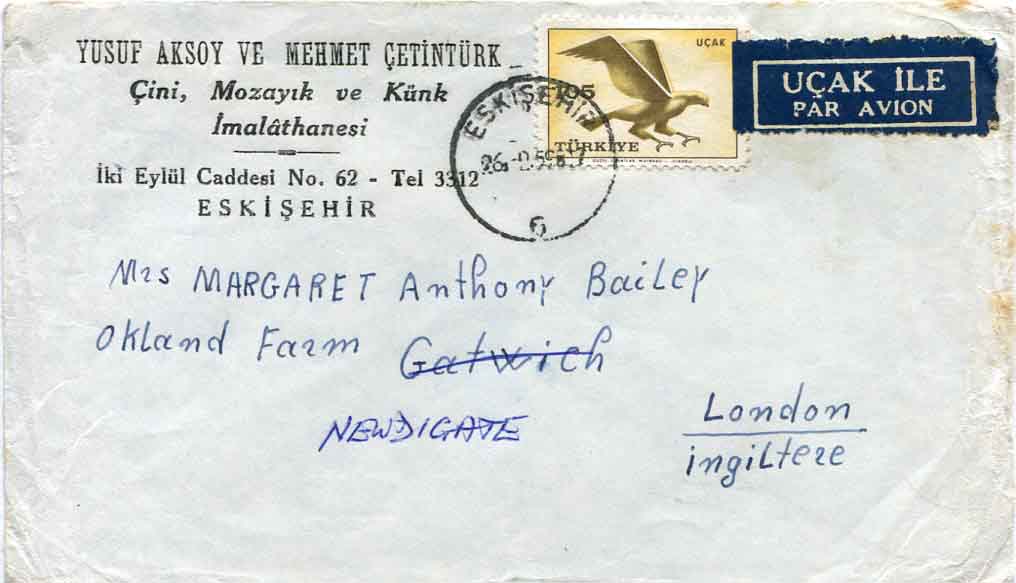 YUSUF AKSOY VE MEHMET ÇETİNTÜRK
Çini, Mozayık ve Künk
İmalâthanesi
İki Eylül Caddesi No. 62 - Tel 3312
ESKİŞEHİR
UÇAK
105
TÜRKİYE
UÇAK İLE
PAR AVION
ESKİŞEHİR
6
Mrs MARGARET Anthony Bailey
Okland Farm Gatwich
NEWDIGATE
London
ingiltere